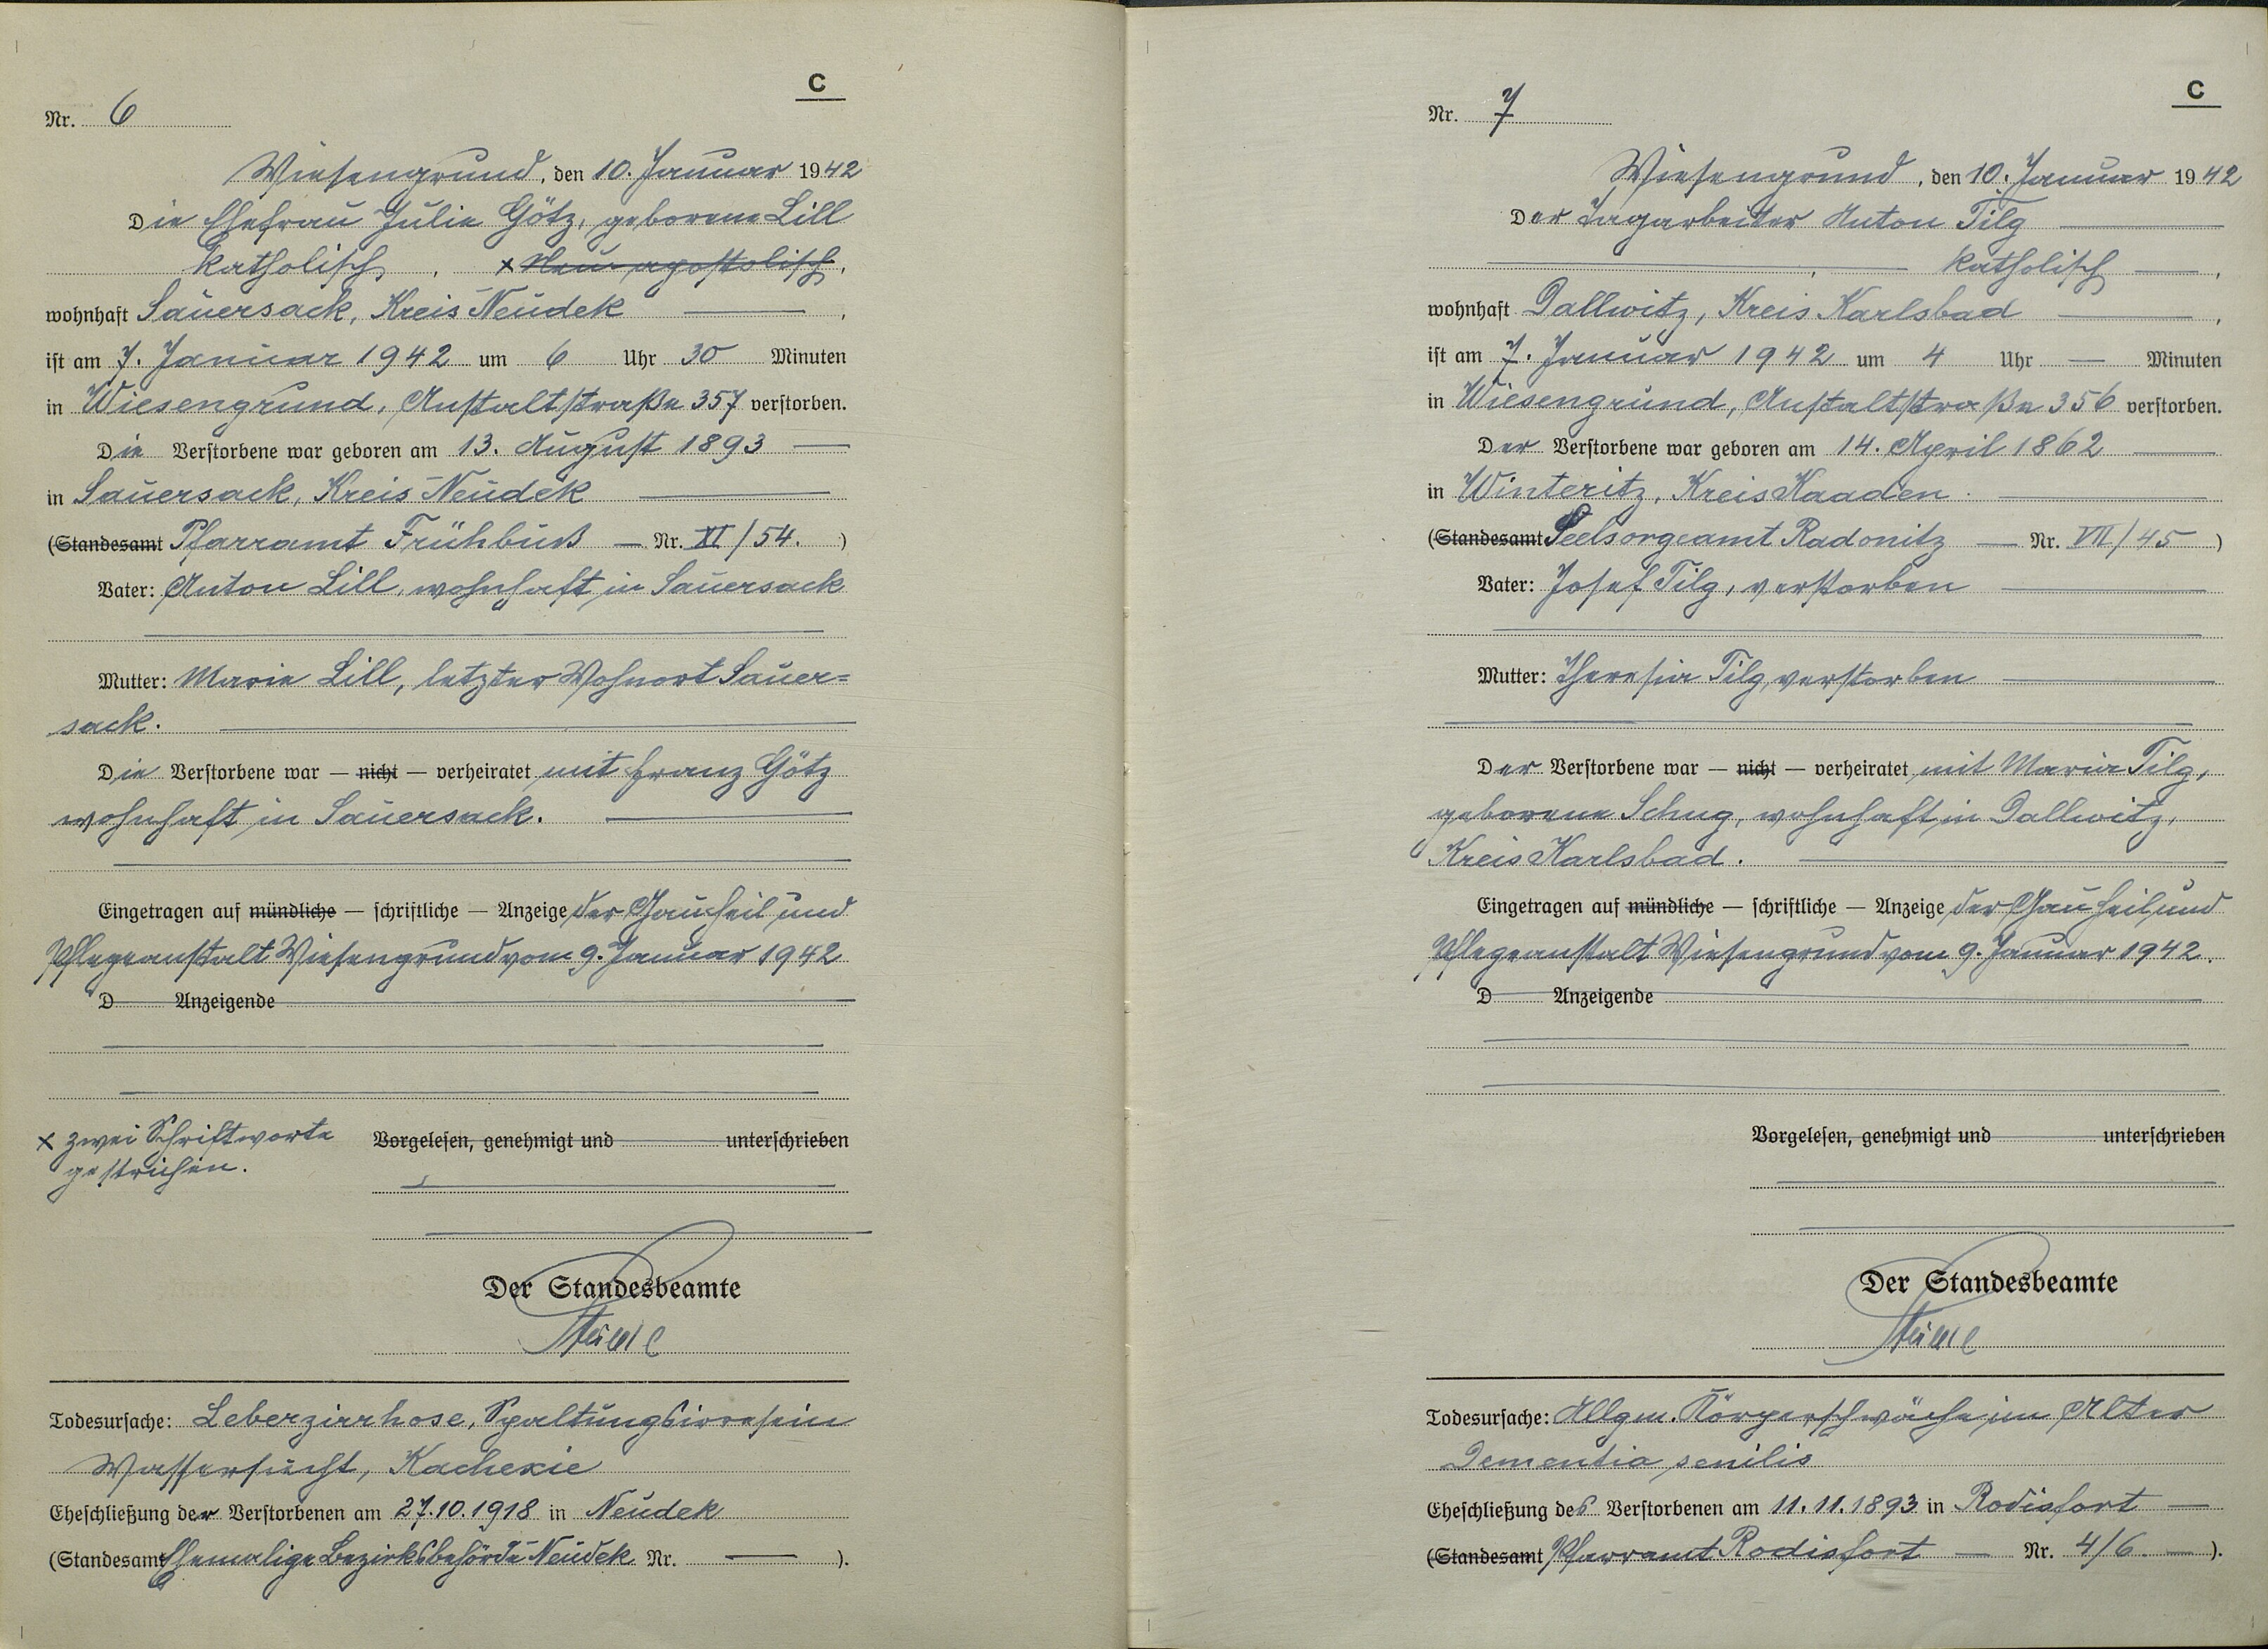 C
Nr. 6
Wiesengrund, den 10. Januar 1942
Die Ehefrau Julie Götz, geborene Lill
katholisch, × Neu-apostolisch,
wohnhaft Sauersack, Kreis Neudek,
ist am 7. Januar 1942 um 6 Uhr 30 Minuten
in Wiesengrund, Anstaltstraße 357 verstorben.
Die Verstorbene war geboren am 13. August 1893
in Sauersack, Kreis Neudek
(Standesamt Pfarramt Frühbuß — Nr. XI/54.)
Vater: Anton Lill, wohnhaft in Sauersack
Mutter: Marie Lill, letzter Wohnort Sauer=
sack.
Die Verstorbene war — nicht — verheiratet mit Franz Götz
wohnhaft in Sauersack.
Eingetragen auf mündliche — schriftliche — Anzeige der Gauheil und
Pflegeanstalt Wiesengrund vom 9. Januar 1942
D Anzeigende
× zwei Schriftworte
gestrichen.
Vorgelesen, genehmigt und unterschrieben
Der Standesbeamte
Todesursache: Leberzirrhose, Spaltungsirresein
Wassersucht, Kachexie
Eheschließung der Verstorbenen am 27.10.1918 in Neudek
(Standesamt Ehemalige Bezirksbehörde Neudek Nr. — ).
C
Nr. 7
Wiesengrund, den 10. Januar 1942
Der Tagarbeiter Anton Tilg
, katholisch —,
wohnhaft Dallwitz, Kreis Karlsbad,
ist am 7. Januar 1942 um 4 Uhr — Minuten
in Wiesengrund, Anstaltstraße 356 verstorben.
Der Verstorbene war geboren am 14. April 1862
in Winteritz, Kreis Kaaden.
(Standesamt Seelsorgeamt Radonitz — Nr. VII/45)
Vater: Josef Tilg, verstorben
Mutter: Theresia Tilg, verstorben
Der Verstorbene war — nicht — verheiratet mit Maria Tilg,
geborene Schug, wohnhaft in Dallwitz,
Kreis Karlsbad.
Eingetragen auf mündliche — schriftliche — Anzeige der Gauheil und
Pflegeanstalt Wiesengrund vom 9. Januar 1942.
D Anzeigende
Vorgelesen, genehmigt und unterschrieben
Der Standesbeamte
Todesursache: Allgm. Körperschwäche im Alter
Dementia senilis
Eheschließung des Verstorbenen am 11.11.1893 in Rodisfort —
(Standesamt Pfarramt Rodisfort — Nr. 4/6 — ).